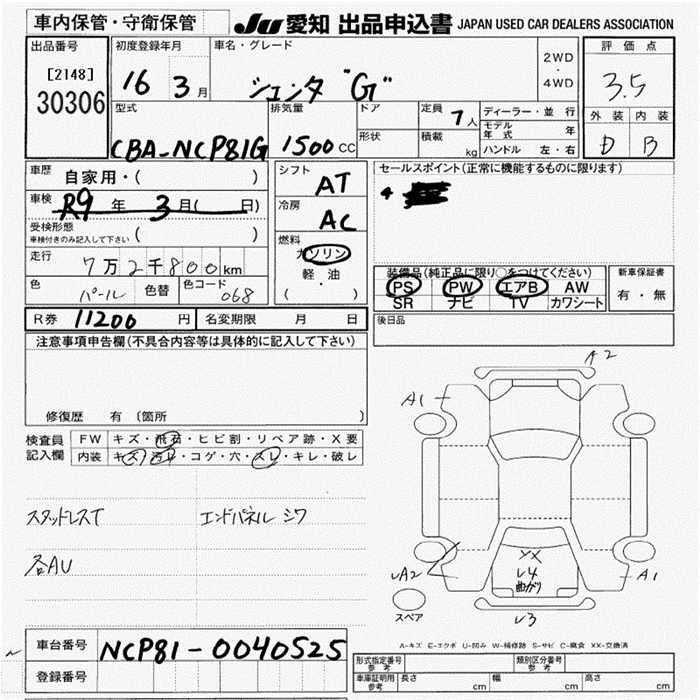 車内保管・守衛保管
JU 愛知 出品申込書 JAPAN USED CAR DEALERS ASSOCIATION
出品番号
[2148]
30306
初度登録年月
16 3月
車名・グレード
シエンタ "G"
2WD
・
4WD
評価点
3.5
外装 内装
D B
型式
CBA-NCP81G
排気量
1500cc
ドア
形状
定員 7人
積載 kg
ディーラー・並行
モデル年式 年
ハンドル 左・右
車歴 自家用・( )
車検 R9年 3月( 日)
受検形態
車検付きのみ記入して下さい ( )
走行 7万2千800km
色 パール 色替 色コード 068
シフト AT
冷房 AC
燃料
ガソリン
軽・油
( )
セールスポイント(正常に機能するものに限ります)
装備品(純正品に限り○をつけてください)
PS PW エアB AW
SR ナビ TV カワシート
新車保証書
有・無
R券 11200円 名変期限 月 日
後日品
注意事項申告欄(不具合内容等は具体的に記入して下さい)
修復歴 有 〔箇所 〕
検査員記入欄
FW キズ・飛石・ヒビ割・リペア跡・X要
内装 キズ・汚れ・コゲ・穴・スレ・キレ・破レ
スタッドレスT エンドパネル シワ
各AU
A2
A1
XX
レ4
曲がり
レA2
A1
レ3
スペア
A-キズ E-エクボ U-凹み W-補修跡 S-サビ C-腐食 XX-交換済
車台番号 NCP81-0040525
登録番号
形式指定番号 参考 類別区分番号 参考
車庫証明用 参考 長さ cm 幅 cm 高さ cm